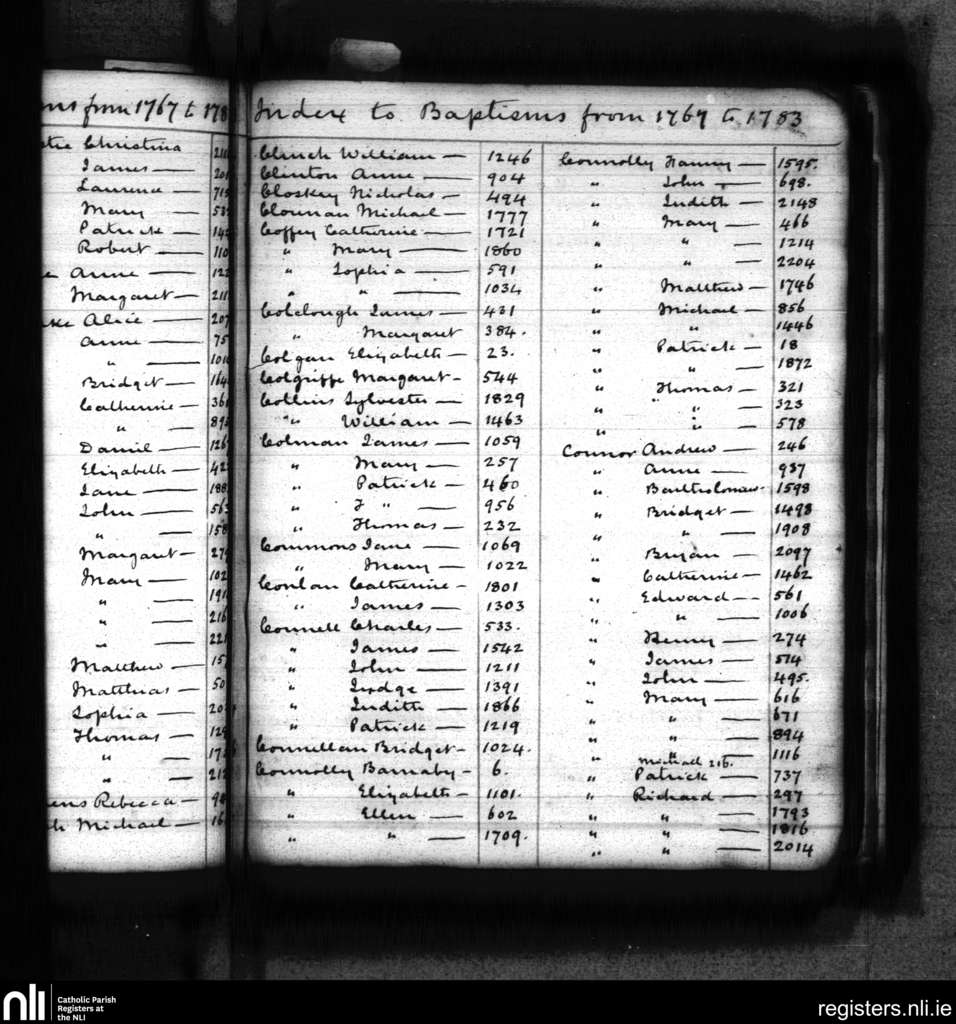 ms from 1767 to 178
Christina 211
James — 201
Laurence — 715
Mary — 53
Patrick — 142
Robert — 110
Anne — 122
Margaret — 211
ke Alice — 207
Anne — 75
" — 101
Bridget — 164
Catherine — 361
" — 895
Daniel — 126
Elizabeth — 42
Jane — 188
John — 563
" — 158
Margaret — 279
Mary — 102
" — 191
" — 216
" — 221
Matthew — 15
Matthias — 50
Sophia — 20
Thomas — 129
" — 17
" — 212
ens Rebecca — 9
h Michael — 16
Index to Baptisms from 1767 to 1783
Clinch William — 1246
Clinton Anne — 904
Closkey Nicholas — 494
Clounan Michael — 1777
Coffey Catherine — 1721
" Mary — 1860
" Sophia — 591
" " — 1034
Colclough James — 431
" Margaret 384.
Colgan Elizabeth — 23.
Colgriffe Margaret - 544
Collins Sylvester — 1829
" William — 1463
Colman James — 1059
" Mary — 257
" Patrick — 460
" J " — 956
" Thomas — 232
Commons Jane — 1069
" Mary — 1022
Conlan Catherine - 1801
" James — 1303
Connell Charles — 533.
" James — 1542
" John — 1211
" Judge — 1391
" Judith — 1866
" Patrick — 1219
Connellan Bridget - 1024.
Connolly Barnaby - 6.
" Elizabeth - 1101.
" Ellen — 602
" " — 1709.
Connolly Fanny — 1595.
" John — 698.
" Judith — 2148
" Mary — 466
" " — 1214
" " — 2204
" Matthew — 1746
" Michael — 856
" " 1446
" Patrick — 18
" " — 1872
" Thomas — 321
" " — 323
" " — 578
Connor Andrew — 246
" Anne — 937
" Bartholomew - 1598
" Bridget — 1498
" " — 1908
" Bryan — 2097
" Catherine — 1462
" Edward — 561
" " — 1006
" Henry — 274
" James — 514
" John — 495.
" Mary — 616
" " — 671
" " — 894
" " — 1116
Michael 216.
" Patrick — 737
" Richard — 297
" " — 1793
" " — 1816
" " — 2014
nli
Catholic Parish
Registers at
the NLI
registers.nli.ie